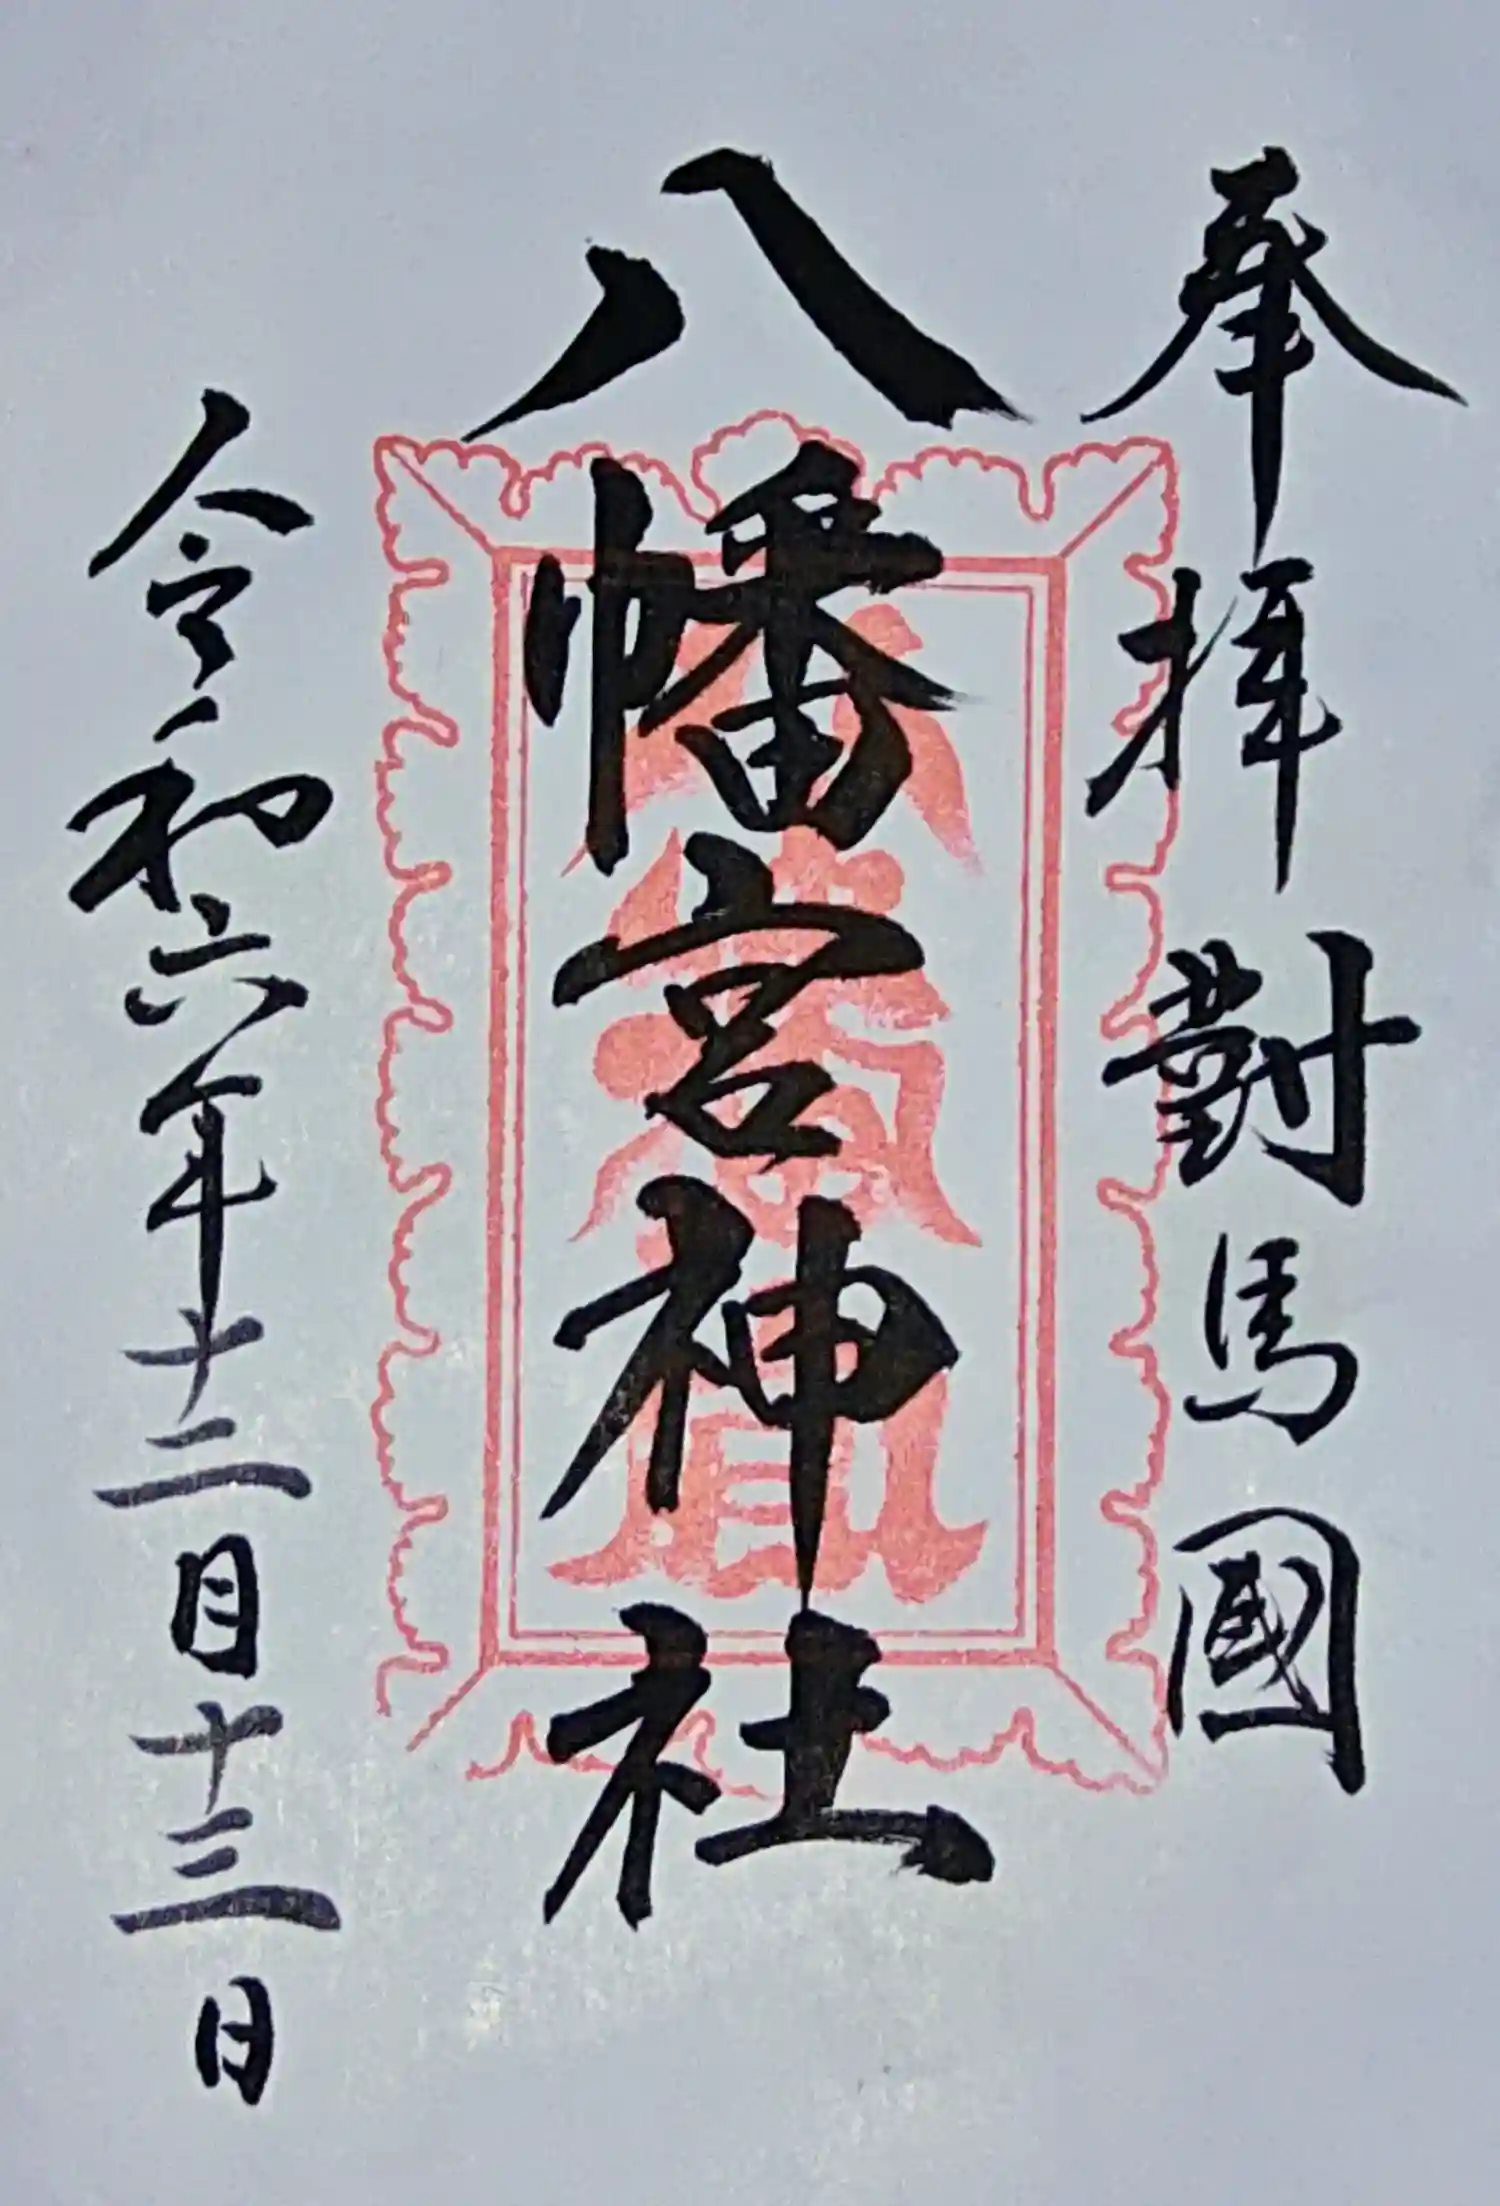 奉拝 對馬國
八幡宮神社
八幡宮
令和六年十二月十三日